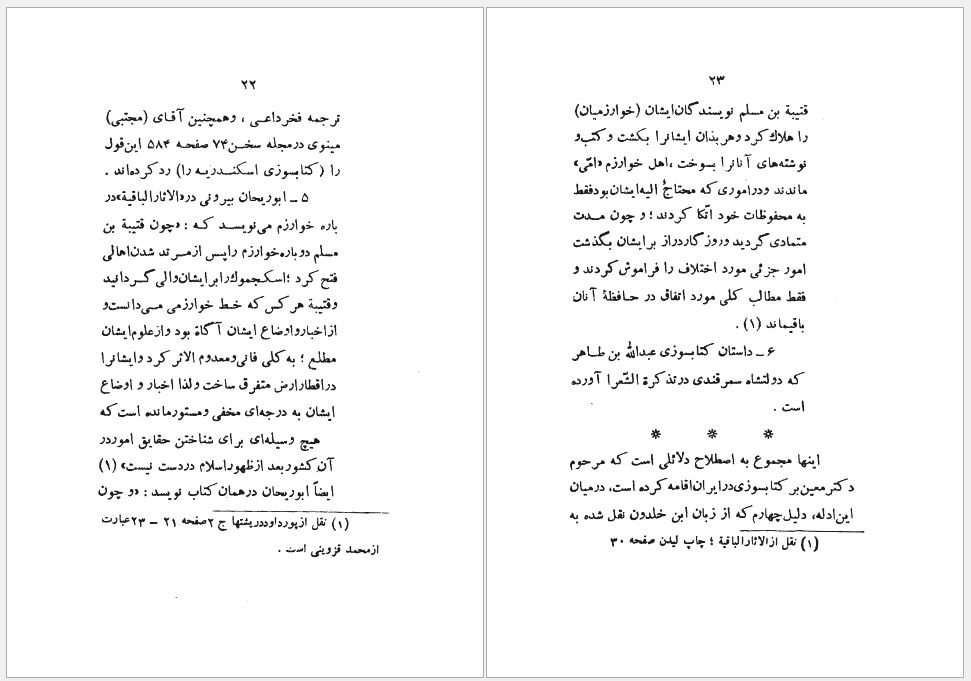 ۲۲
ترجمه فخرداعی ، وهمچنین آقای (مجتبی)
مینوی درمجله سخن ۷۴ صفحه ۵۸۴ این قول
را (کتابسوزی اسکندریه را) رد کرده‌اند .
۵ ــ ابوریحان بیرونی در«الاثارالباقیة»در
باره خوارزم می‌نویسد که : «چون قتیبة بن
مسلم دوباره خوارزم را پس ازمرتد شدن اهالی
فتح کرد ؛ اسکجموك را بر ایشان والی گردانید
وقتیبة هر کس که خط خوارزمی می‌دانست و
از اخبار و اوضاع ایشان آگاه بود و از علوم ایشان
مطلع ؛ به کلی فانی و معدوم الاثر کرد و ایشانرا
در اقطار ارض متفرق ساخت ولذا اخبار و اوضاع
ایشان به درجه‌ای مخفی و مستور مانده است که
هیچ وسیله‌ای برای شناختن حقایق امور در
آن کشور بعد از ظهور اسلام در دست نیست» (۱)
ایضاً ابوریحان درهمان کتاب نویسد : «و چون
(۱) نقل از پورداود دریشتها ج ۲ صفحه ۲۱ ــ ۲۳ عبارت
از محمد قزوینی است .
۲۳
قتیبة بن مسلم نویسندگان ایشان (خوارزمیان)
را هلاك کرد و هربذان ایشانرا بکشت و کتب و
نوشته‌های آنانرا بسوخت ، اهل خوارزم «امّی»
ماندند و در اموری که محتاجٌ الیه ایشان بود فقط
به محفوظات خود اتّکا کردند ؛ و چون مدت
متمادی گردید و روزگار دراز بر ایشان بگذشت
امور جزئی مورد اختلاف را فراموش کردند و
فقط مطالب کلی مورد اتفاق در حافظهٔ آنان
باقیماند (۱) .
۶ ــ داستان کتابسوزی عبدالله بن طاهر
که دولتشاه سمرقندی درتذکرة الشّعرا آورده
است .
* * *
اینها مجموع به اصطلاح دلائلی است که مرحوم
دکترمعین بر کتابسوزی درایران اقامه کرده است ، درمیان
این ادله، دلیل چهارم که از زبان ابن خلدون نقل شده به
(۱) نقل ازالاثارالباقیة ؛ چاپ لیدن صفحه ۳۰